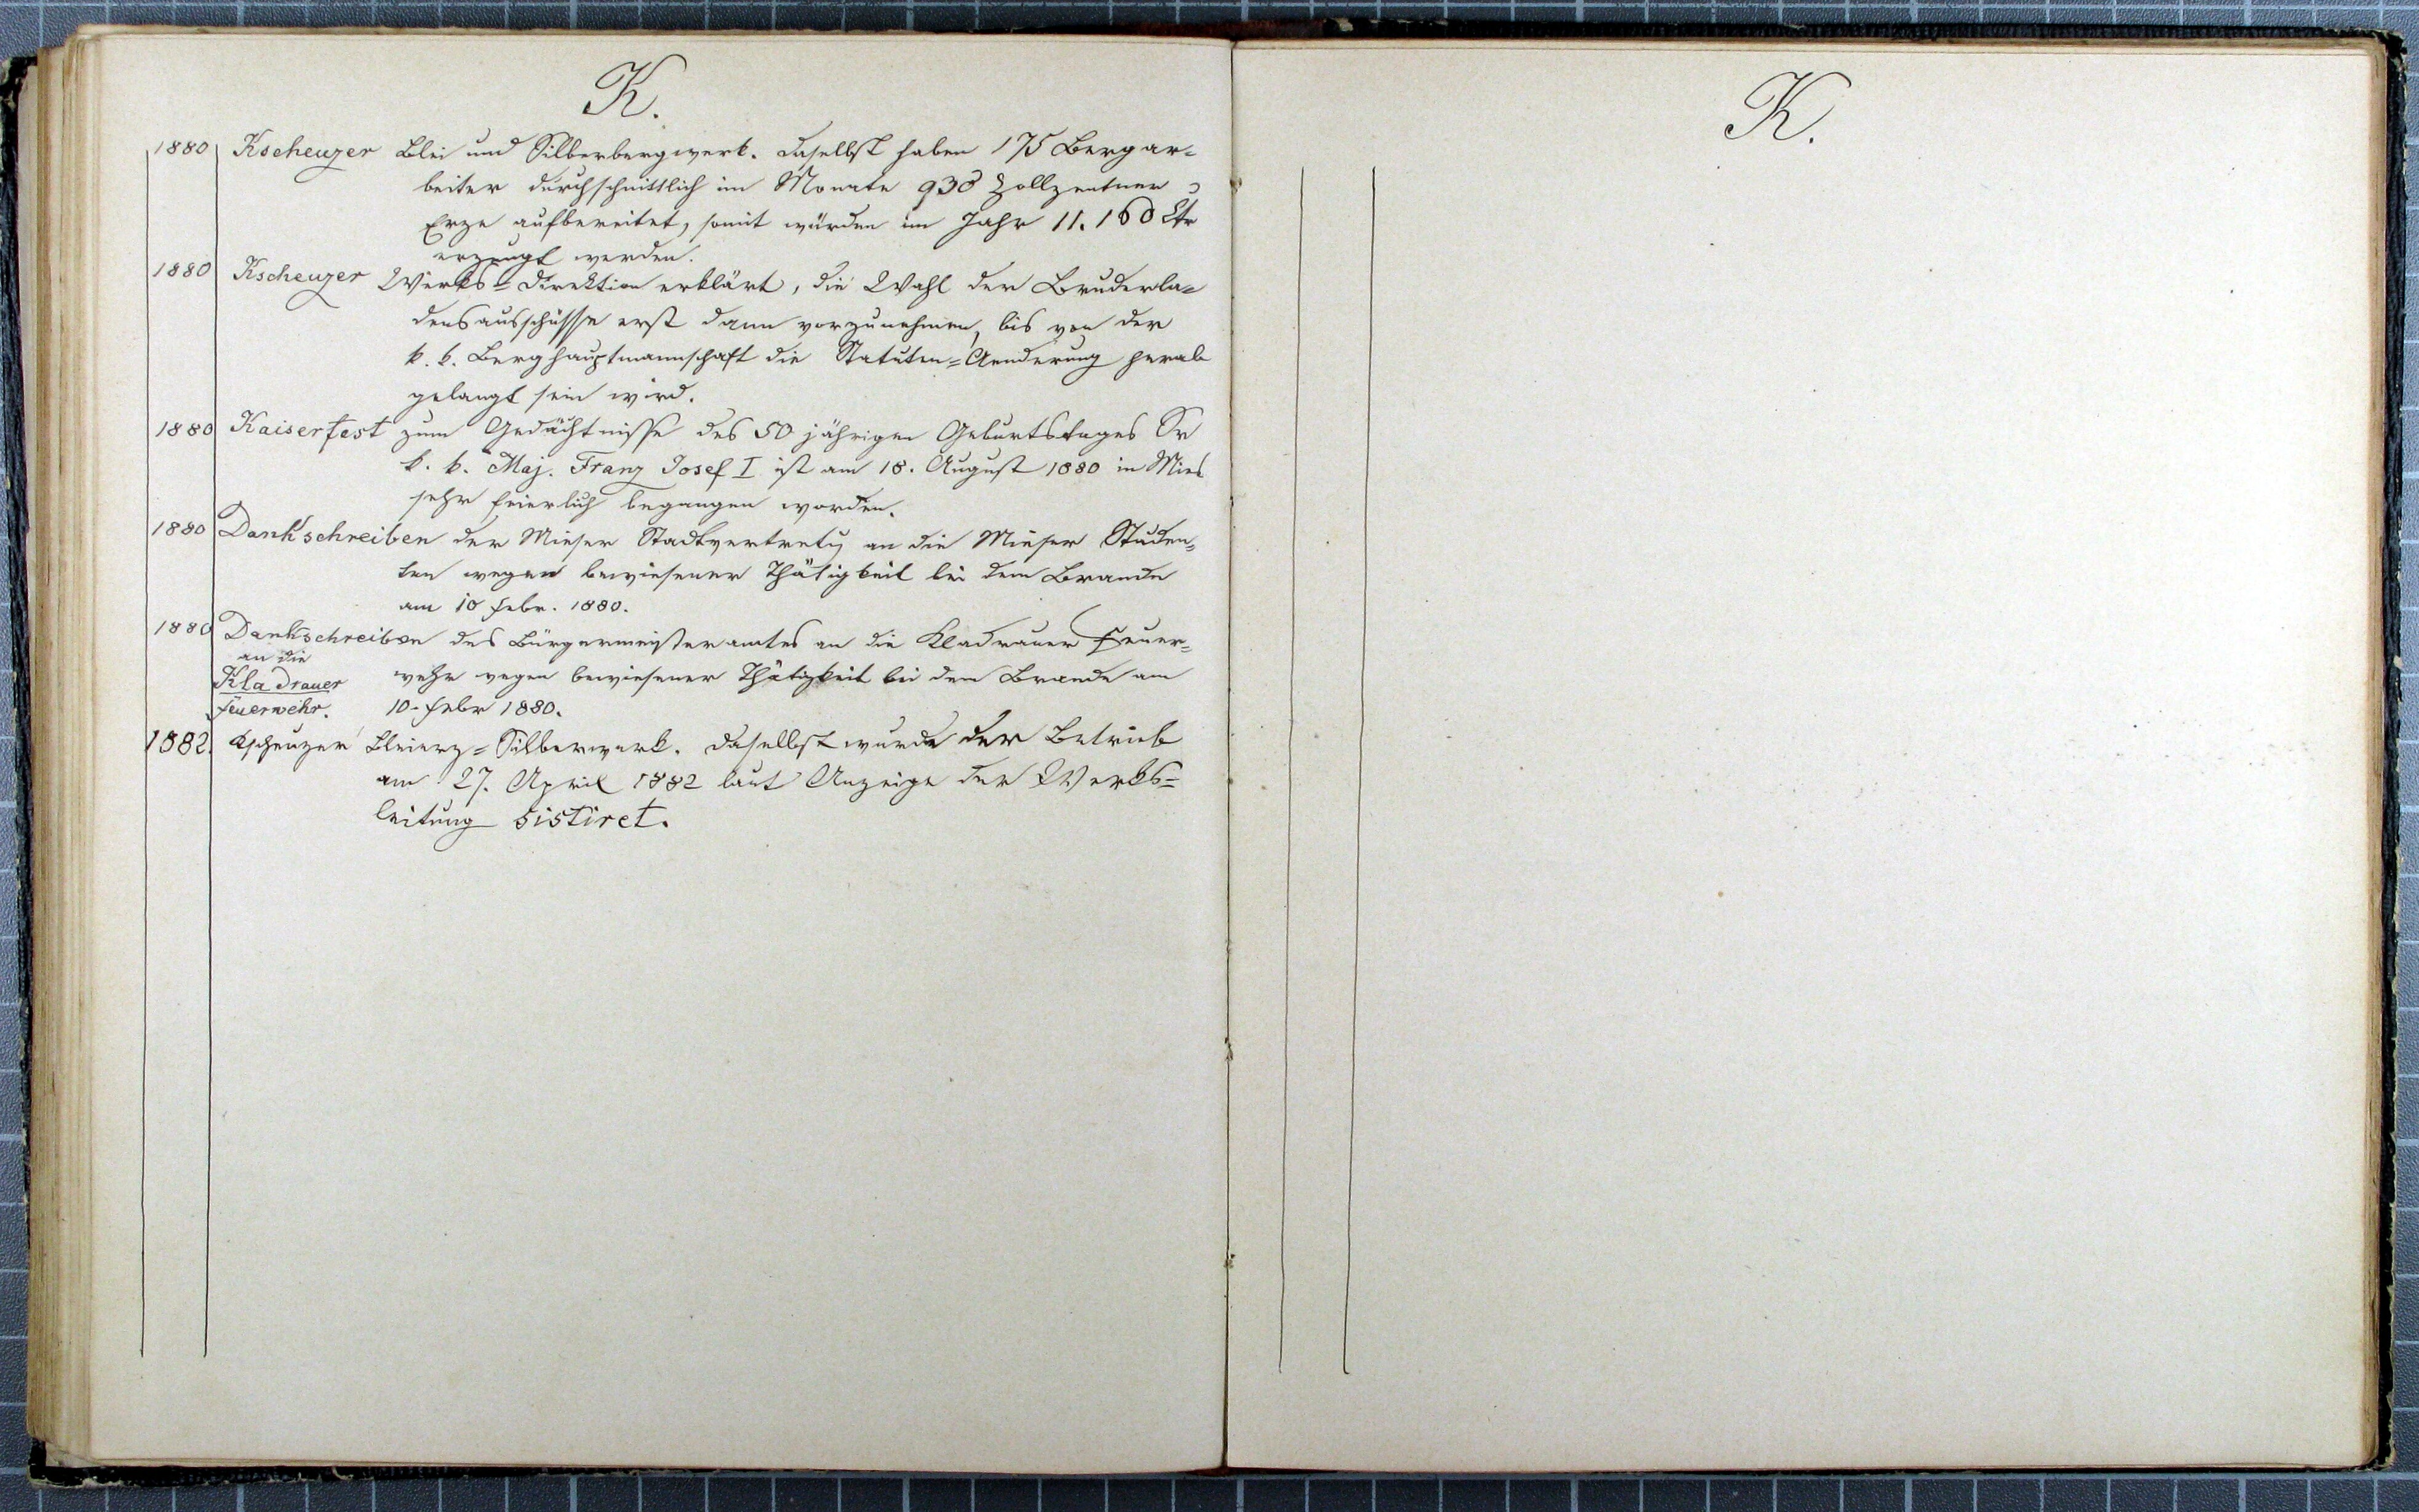 K.
1880 Kscheuzer Blei und Silberbergwerk. Daselbst haben 175 Bergar=
beiter durchschnittlich im Monate 930 Zollzentner
Erze aufbereitet, somit würden im Jahr 11.160 Ctr
erzeugt werden.
1880 Kscheuzer Werks=Direktion erklärt, die Wahl der Bruderla=
densausschüsse erst dann vorzunehmen, bis von der
k. k. Berghauptmannschaft die Statuten=Aenderung herab
gelangt sein wird.
1880 Kaiserfest zum Gedächtnisse des 50 jährigen Geburtstages Sr
k. k. Maj. Franz Josef I ist am 18. August 1880 in Mies
sehr feierlich begangen worden.
1880 Dankschreiben der Mieser Stadtvertretg an die Mieser Studen=
ten wegen bewiesener Thätigkeit bei dem Brande
am 10 Febr. 1880.
1880 Dankschreiben des Bürgermeisteramtes an die Kladrauer Feuer=
an die
Kladrauer wehr wegen bewiesener Thätigkeit bei dem Brande am
Feuerwehr. 10. Febr 1880.
1882. Kscheuzer Bleierz=Silberwerk. Daselbst wurde der Betrieb
am 27. April 1882 laut Anzeige der Werks=
leitung sistiret.
K.